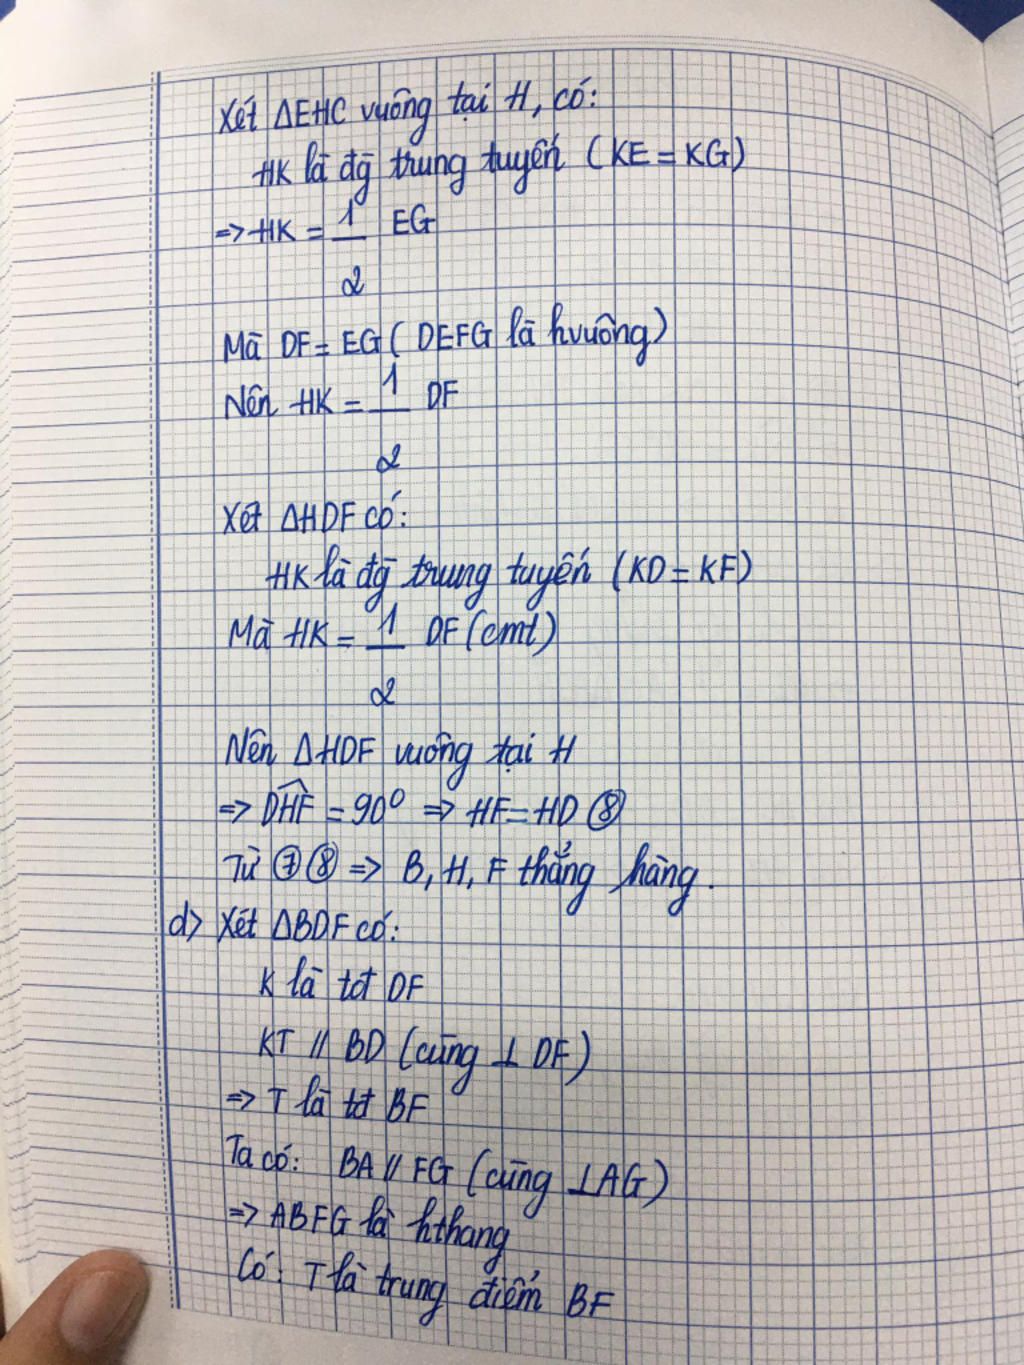 Xét ΔEHC vuông tại H, có:
HK là đg̃ trung tuyến (KE = KG)
=> HK = 1/2 EG
Mà DF = EG (DEFG là hvuông)
Nên HK = 1/2 DF
Xét ΔHDF có:
HK là đg̃ trung tuyến (KD = KF)
Mà HK = 1/2 DF (cmt)
Nên ΔHDF vuông tại H
=> DHF̂ = 90° => HF = HD ⑧
Từ ⑦⑧ => B, H, F thẳng hàng.
d> Xét ΔBDF có:
K là tđ DF
KT // BD (cùng ⊥ DF)
=> T là tđ BF
Ta có: BA // FG (cùng ⊥ AG)
=> ABFG là hthang
Có: T là trung điểm BF